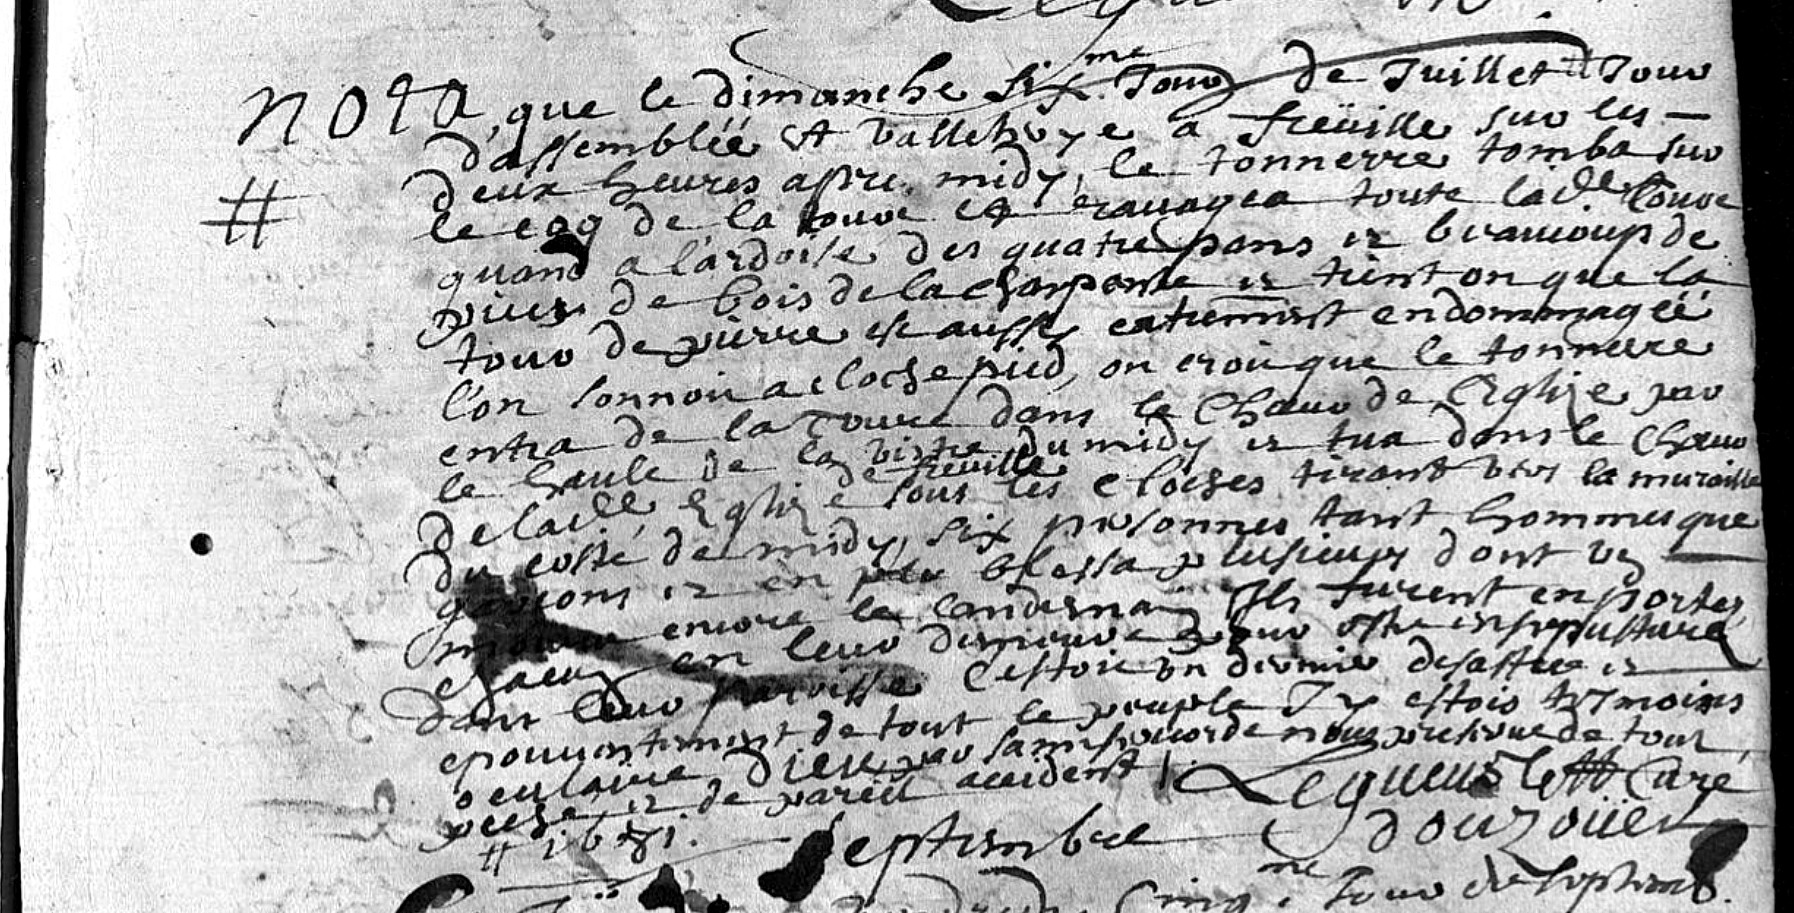 nota, que le dimanche six.me Jour de Juillet # Jour
d'assemblée et vallet a freüille sur les —
deux heures apres midy, le tonnerre tomba sur
le coq de la tour et ravagea toute lad.te toure
quand a l'ardoise des quatre pans et beaucoup de
pieces de bois de la charpente et tient on que la
tour de pierre est aussy extremement endommagéé
l'on sonnoit a cloche pied, on croit que le tonnerre
entra de la Toure dans le Choeur de l'Eglize par
le haule de la vistre du midy et tua dans le choeur
de freville
de lad.te Eglize sous les cloches tirant vers la muraille
du costé de midy, six personnes tant hommes que
garçons et en blessa plusieurs dont un
mourut encore le lendemain Ils furent enportés
chacun en leur demeure pour estre ensepulturé
dans leur paroisse C'estoit un dernier desastre et
epouventement de tout le peuple J'y estois tesmoins
oculaire Dieu par sa misericorde nous preserve de tour
peché et de pareil accident /.
Lequeux Curé
d'ouzoüer
# 1681.
Septembre
cinq.me Jour de septemb.